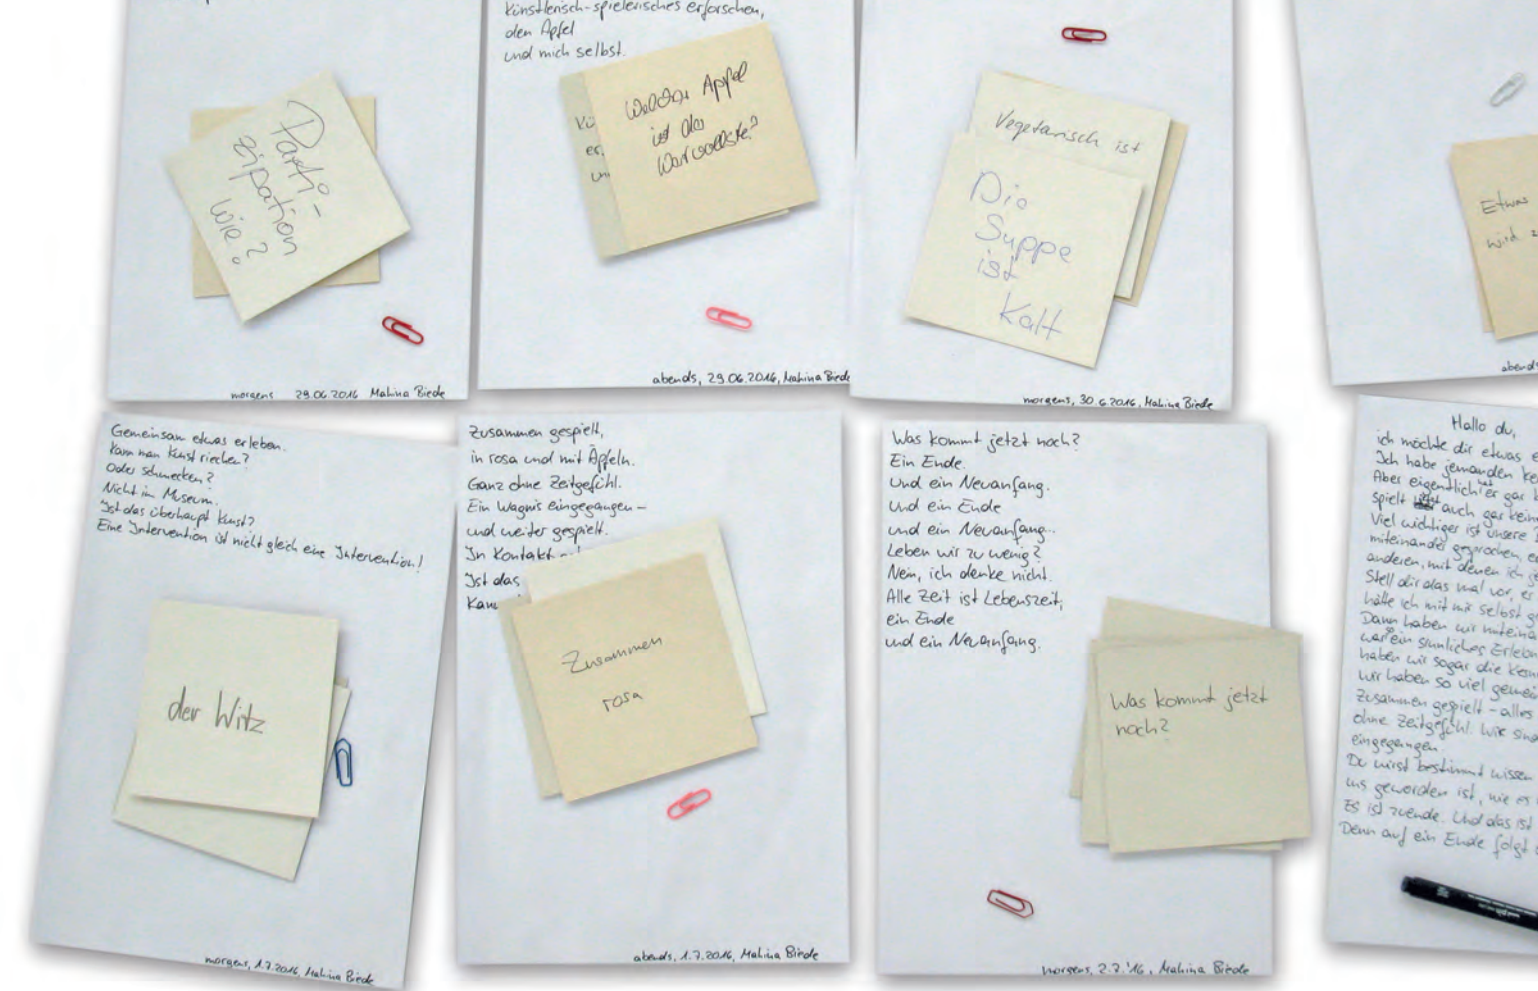 Parti-
zipation
wie?
morgens 29.06.2016 Mahina Biede
künstlerisch-spielerisches erforschen,
den Apfel
und mich selbst.
Welcher Apfel
ist der
Wertvollste?
abends, 29.06.2016, Mahina Biede
Vegetarisch ist
Die
Suppe
ist
Kalt
morgens, 30.6.2016, Mahina Biede
Etwas
wird
abends
Gemeinsam etwas erleben.
Kann man Kunst riechen?
Oder schmecken?
Nicht im Museum.
Ist das überhaupt Kunst?
Eine Intervention ist nicht gleich eine Intervention!
der Witz
morgens, 1.7.2016, Mahina Biede
Zusammen gespielt,
in rosa und mit Äpfeln.
Ganz ohne Zeitgefühl.
Ein Wagnis eingegangen –
und weiter gespielt.
In Kontakt
Ist das
Kann
Zusammen
rosa
abends, 1.7.2016, Mahina Biede
Was kommt jetzt noch?
Ein Ende.
und ein Neuanfang.
und ein Ende
und ein Neuanfang...
Leben wir zu wenig?
Nein, ich denke nicht.
Alle Zeit ist Lebenszeit,
ein Ende
und ein Neuanfang.
Was kommt jetzt
noch?
morgens, 2.7.'16, Mahina Biede
Hallo du,
ich möchte dir etwas
Ich habe jemanden
Aber eigentlich hat er gar
spielt auch gar
Viel wichtiger ist unsere
miteinander gesprochen,
anderen, mit denen ich
Stell dir das mal vor, es
hätte ich mit mir selbst
Dann haben wir
war ein sinnliches
haben wir sogar die
wir haben so viel
Zusammen gespielt – alles
ohne Zeitgefühl. Wir sind
eingegangen.
Du wirst bestimmt wissen
uns geworden ist, wie es
Es ist zuende. Und das ist
Denn auf ein Ende folgt